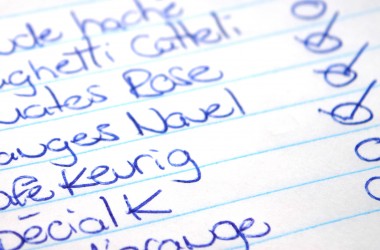 ude haché
ghetti Catteli
uates Rose
anges Navel
afé Keurig
pécial K
orange